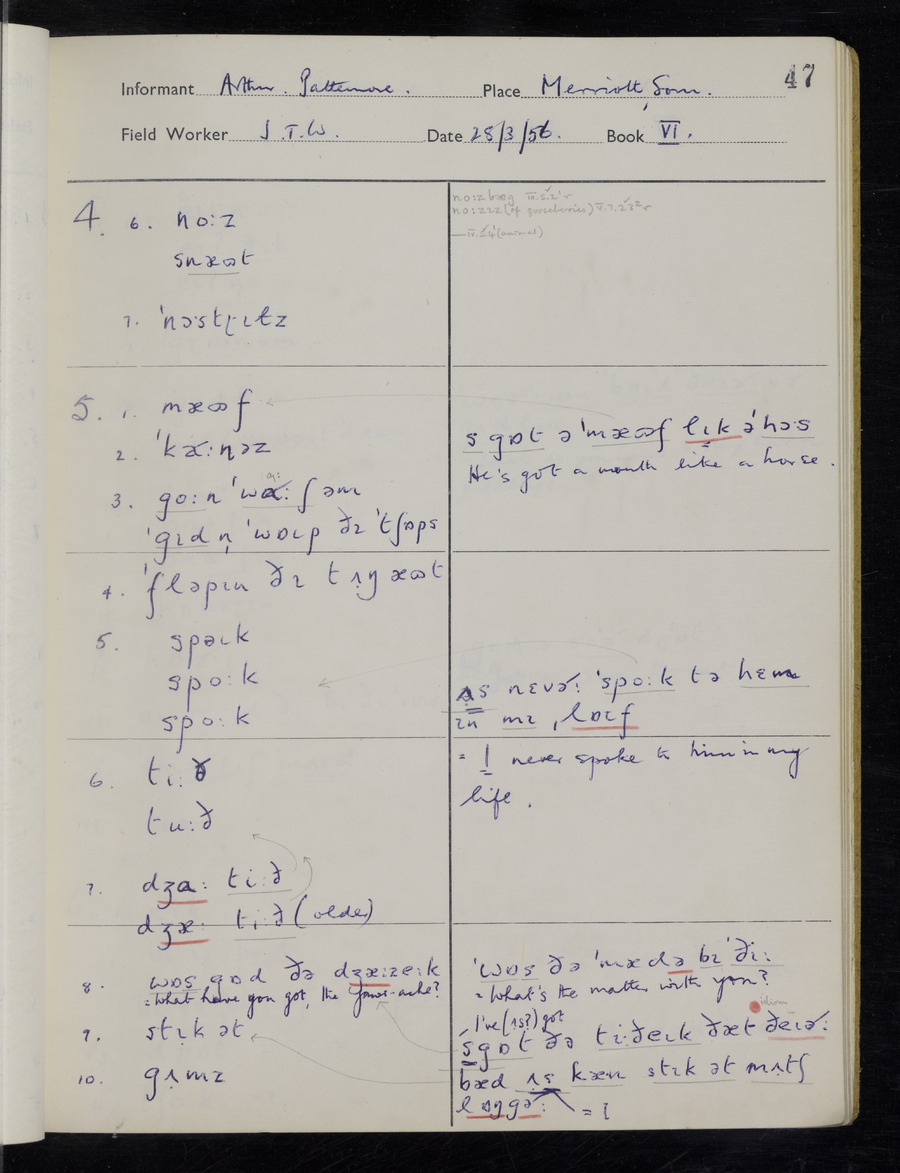 47
Informant Arthur. Pattemore. Place Merriott, Som.
Field Worker J.T.W. Date 28/3/56. Book VI.
4. 6. no:z
snæɷt
7. 'nɔstɽɩtz
no:zbæg
no:zɪz (of gooseberries)
(animal)
5. 1. mæɷf
2. 'kæ:nəz
3. go:n 'wɑ: ʃəm
'gɪd n̩ 'wɒɩp ðɪ 'tʃɒps
s gɒt ə 'mæɷf lɩk ə 'hɔ·s
He's got a mouth like a horse.
4. 'fləpɪn ðɪ tʌŋ æɷt
5. spəɩk
spo:k
spo:k
ʌs nɛvə: 'spo:k tə hɛm
ɪn mɪ ˌlɒɪf
= I never spoke to him in my
life.
6. ti:ð
tu:ð
7. dʒɑ: ti:ð
dʒæ: ti:ð (older)
8. wɒs gɒd ðə dʒæ:ze:k
= What have you got, the jaws-ache?
'wɒs ðə 'mædə bɪ 'ði:
= What's the matter with you?
idiom
9. stɪk ət
I've (ɪs?) got
s gɒt ðə ti:ðeɩk ðæt ðeɪə:
10. gʌmz
bæd ʌs kæn stɪk ət mʌtʃ
lɒŋgə: = I